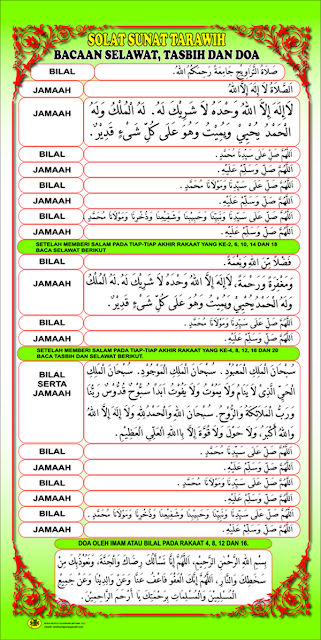 SOLAT SUNAT TARAWIH
BACAAN SELAWAT, TASBIH DAN DOA
BILAL
صَلَاةُ التَّرَاوِيحِ جَامِعَةً رَحِمَكُمُ اللهُ.
JAMAAH
اَلصَّلَاةُ لَا إِلَهَ إِلَّا اللهُ
JAMAAH
لَا إِلَهَ إِلَّا اللهُ وَحْدَهُ لَا شَرِيكَ لَهُ. لَهُ الْمُلْكُ وَلَهُ
الْحَمْدُ يُحْيِي وَيُمِيتُ وَهُوَ عَلَى كُلِّ شَيْءٍ قَدِيْرٌ.
BILAL
اَللَّهُمَّ صَلِّ عَلَى سَيِّدِنَا مُحَمَّدٍ.
JAMAAH
اَللَّهُمَّ صَلِّ وَسَلِّمْ عَلَيْهِ.
BILAL
اَللَّهُمَّ صَلِّ عَلَى سَيِّدِنَا وَمَوْلَانَا مُحَمَّدٍ.
JAMAAH
اَللَّهُمَّ صَلِّ وَسَلِّمْ عَلَيْهِ.
BILAL
اَللَّهُمَّ صَلِّ عَلَى سَيِّدِنَا وَنَبِيِّنَا وَحَبِيبِنَا وَشَفِيعِنَا وَذُخْرِنَا وَمَوْلَانَا مُحَمَّدٍ.
JAMAAH
اَللَّهُمَّ صَلِّ وَسَلِّمْ عَلَيْهِ.
SETELAH MEMBERI SALAM PADA TIAP-TIAP AKHIR RAKAAT YANG KE-2, 6, 10, 14 DAN 18
BACA SELAWAT BERIKUT
BILAL
فَضْلًا مِّنَ اللهِ وَنِعْمَةً.
JAMAAH
وَمَغْفِرَةً وَرَحْمَةً، لَا إِلَهَ إِلَّا اللهُ وَحْدَهُ لَا شَرِيكَ لَهُ. لَهُ الْمُلْكُ
وَلَهُ الْحَمْدُ يُحْيِي وَيُمِيتُ وَهُوَ عَلَى كُلِّ شَيْءٍ قَدِيْرٌ.
BILAL
اَللَّهُمَّ صَلِّ عَلَى سَيِّدِنَا وَمَوْلَانَا مُحَمَّدٍ.
JAMAAH
اَللَّهُمَّ صَلِّ وَسَلِّمْ عَلَيْهِ.
SETELAH MEMBERI SALAM PADA TIAP-TIAP AKHIR RAKAAT YANG KE-4, 8, 12, 16 DAN 20
BACA TASBIH DAN SELAWAT BERIKUT.
BILAL
SERTA
JAMAAH
سُبْحَانَ الْمَلِكِ الْمَعْبُودِ. سُبْحَانَ الْمَلِكِ الْمَوْجُودِ. سُبْحَانَ الْمَلِكِ
الْحَيِّ الَّذِي لَا يَنَامُ وَلَا يَمُوتُ وَلَا يَفُوتُ أَبَدًا سُبُّوحٌ قُدُّوسٌ رَبُّنَا
وَرَبُّ الْمَلَائِكَةِ وَالرُّوْحِ. سُبْحَانَ اللهِ وَالْحَمْدُ لِلَّهِ وَلَا إِلَهَ إِلَّا اللهُ
وَاللهُ أَكْبَرُ، وَلَا حَوْلَ وَلَا قُوَّةَ إِلَّا بِاللهِ الْعَلِيِّ الْعَظِيْمِ.
BILAL
اَللَّهُمَّ صَلِّ عَلَى سَيِّدِنَا مُحَمَّدٍ.
JAMAAH
اَللَّهُمَّ صَلِّ وَسَلِّمْ عَلَيْهِ.
BILAL
اَللَّهُمَّ صَلِّ عَلَى سَيِّدِنَا وَمَوْلَانَا مُحَمَّدٍ.
JAMAAH
اَللَّهُمَّ صَلِّ وَسَلِّمْ عَلَيْهِ.
BILAL
اَللَّهُمَّ صَلِّ عَلَى سَيِّدِنَا وَنَبِيِّنَا وَحَبِيبِنَا وَشَفِيعِنَا وَذُخْرِنَا وَمَوْلَانَا مُحَمَّدٍ.
JAMAAH
اَللَّهُمَّ صَلِّ وَسَلِّمْ عَلَيْهِ.
DOA OLEH IMAM ATAU BILAL PADA RAKAAT 4, 8, 12 DAN 16.
بِسْمِ اللهِ الرَّحْمَنِ الرَّحِيْمِ، اَللَّهُمَّ إِنَّا نَسْأَلُكَ رِضَاكَ وَالْجَنَّةَ، وَنَعُوْذُبِكَ مِنْ
سَخَطِكَ وَالنَّارِ، اَللَّهُمَّ إِنَّكَ الْعَفُوُّ فَاعْفُ عَنَّا وَعَنْ وَالِدِيْنَا وَعَنْ جَمِيْعِ
الْمُسْلِمِيْنَ وَالْمُسْلِمَاتِ بِرَحْمَتِكَ يَا أَرْحَمَ الرَّاحِمِيْنَ.